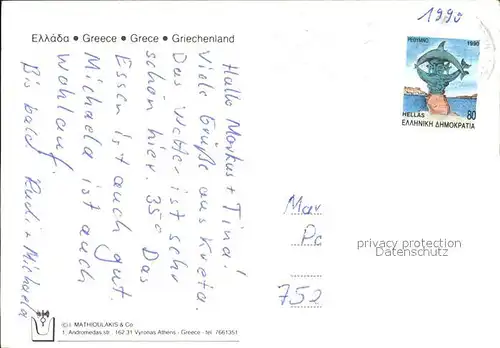 1990
Ελλάδα • Greece • Grece • Griechenland
ΡΕΘΥΜΝΟ 1990
HELLAS 80
ΕΛΛΗΝΙΚΗ ΔΗΜΟΚΡΑΤΙΑ
Hallo Markus + Tina!
Viele Grüße aus Kreta.
Das Wetter ist sehr
schön hier. 35° Das
Essen ist auch gut.
Michaela ist auch
wohlauf.
Bis bald Rudi + Michaela
Mar
Pc
752
privacy protection
Datenschutz
I. MATHIOULAKIS & Co
1, Andromedas str., 162 31 Vyronas Athens - Greece - tel. 7661351